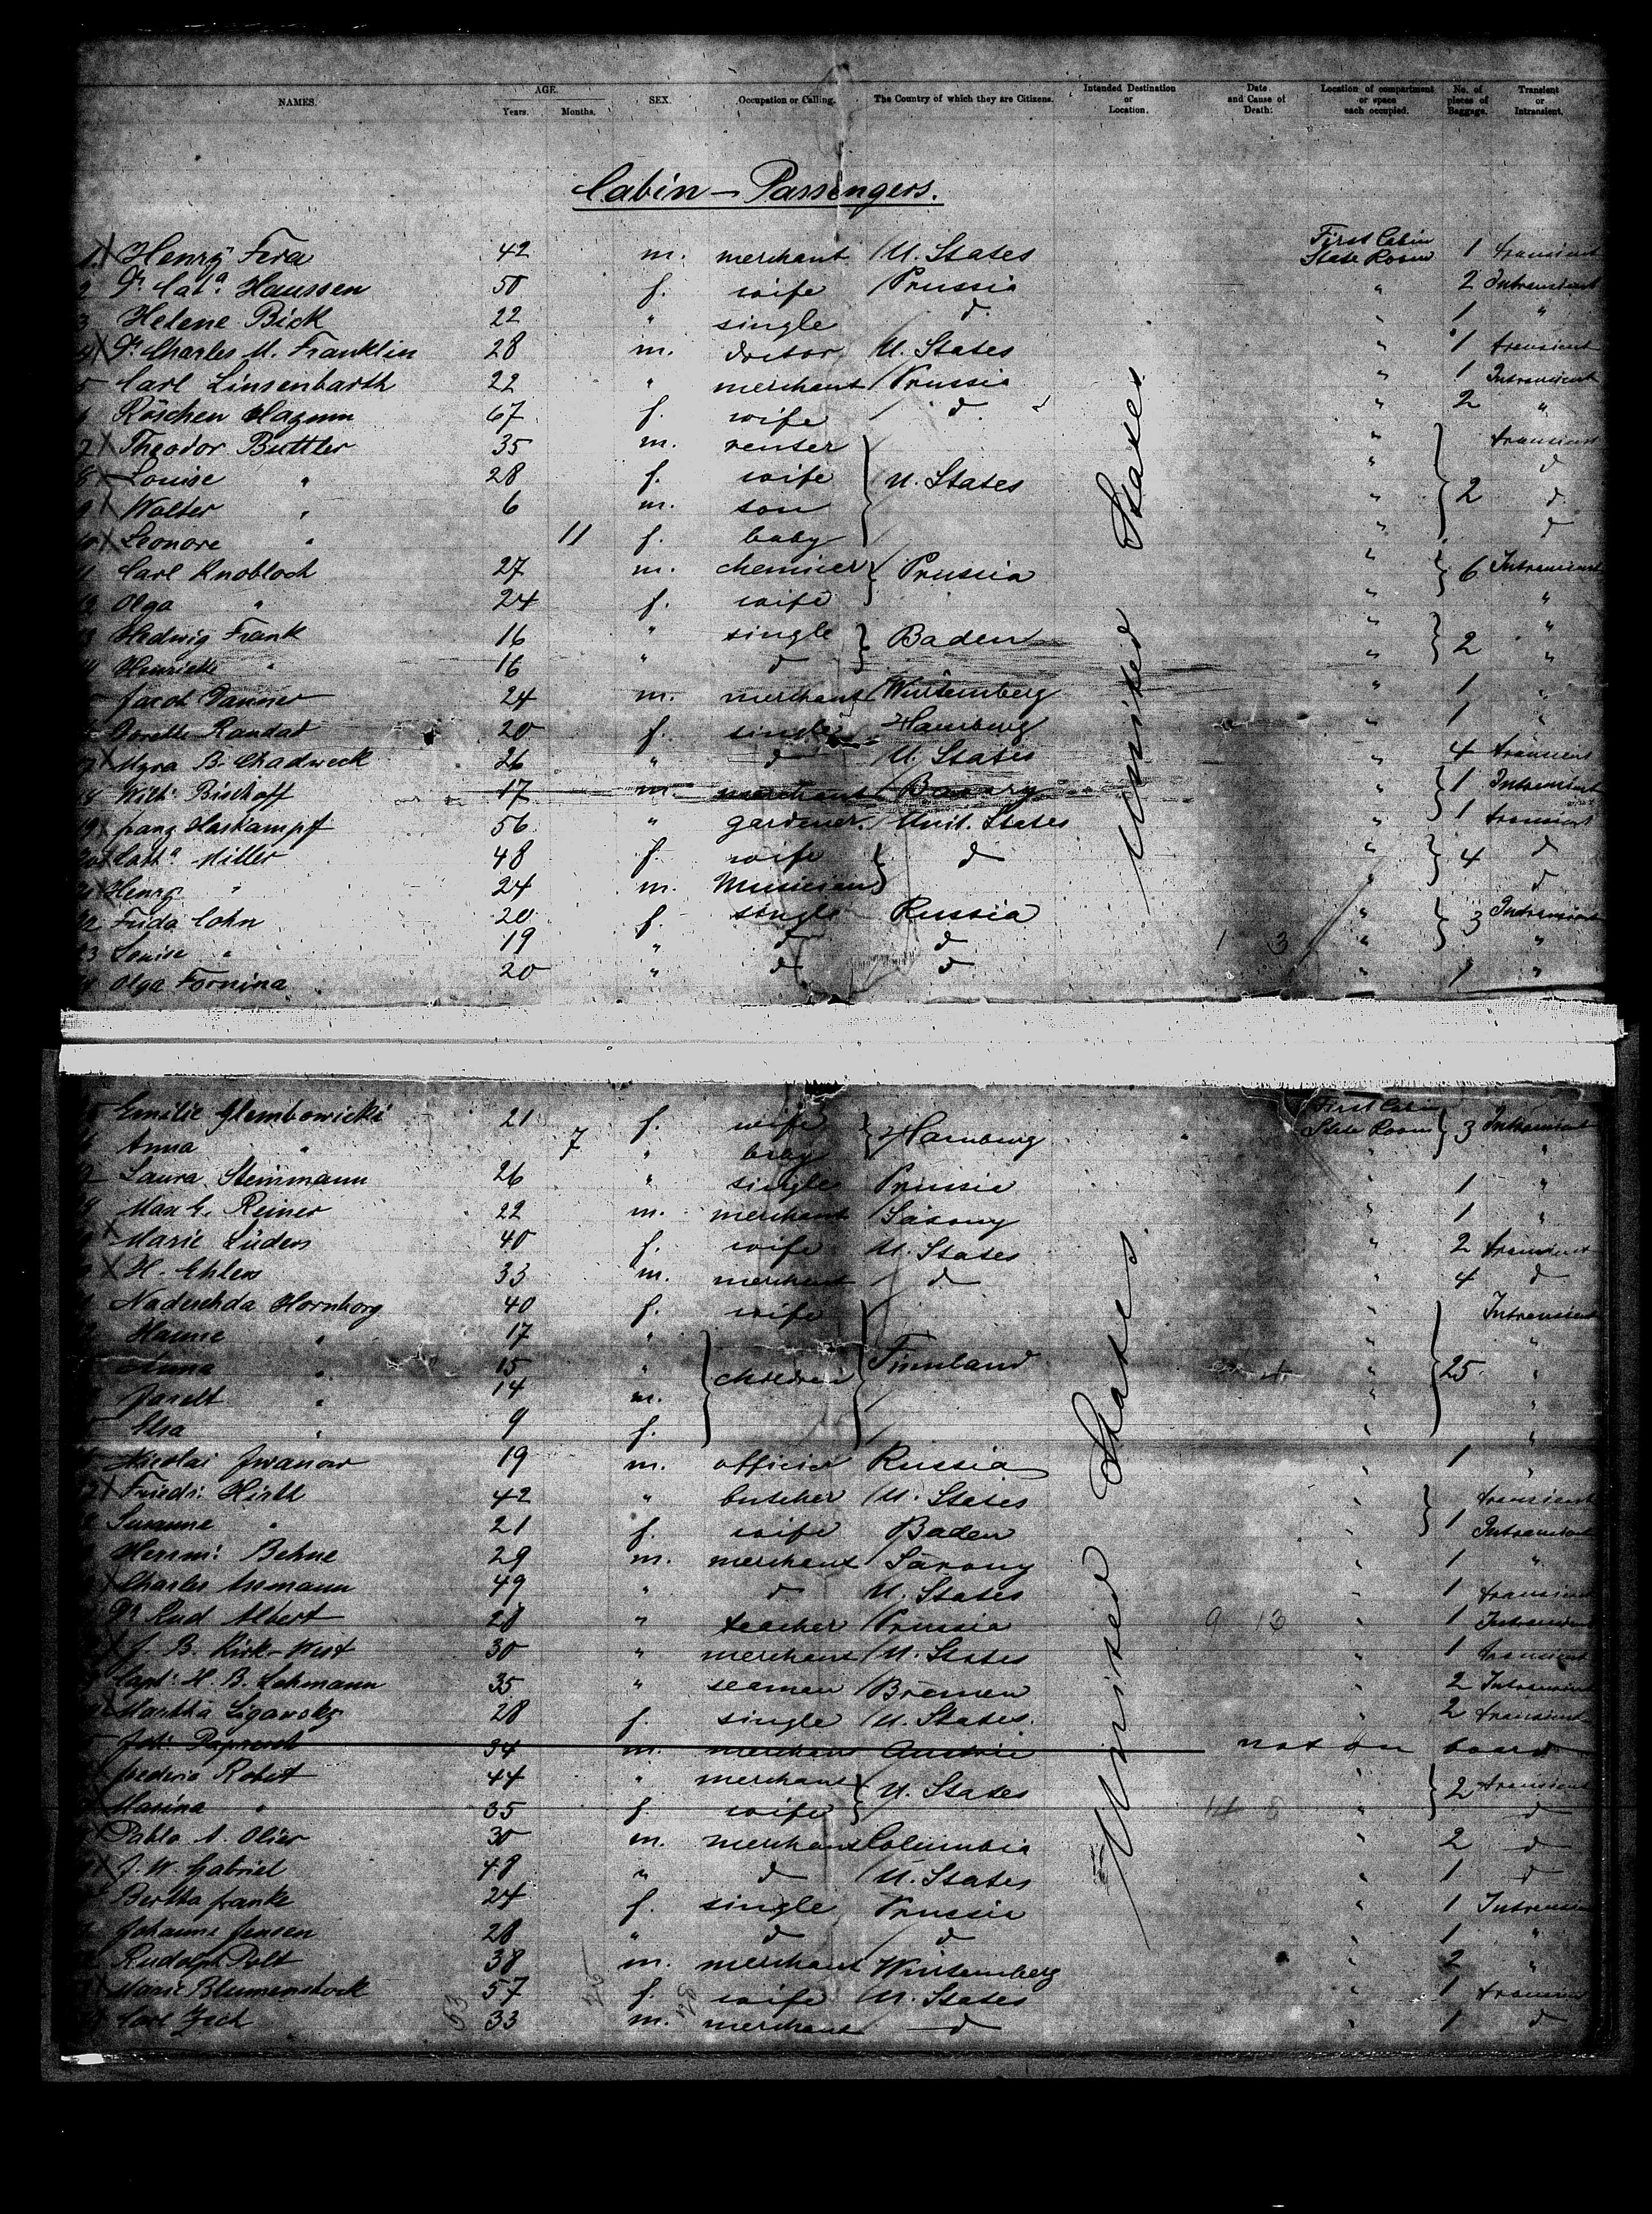 NAMES. AGE. Years. Months. SEX. Occupation or Calling. The Country of which they are Citizens. Intended Destination or Location. Date and Cause of Death: Location of compartment or space each occupied. No. of pieces of Baggage. Transient or Intransient.
Cabin - Passengers.
1 X Henry Fera 42 m. merchant U. States First Cabin State Room 1 transient
2 Fr. Cath.a Haussen 50 f. wife Prussia " 2 Intransient
3 Helene Bick 22 " single d " 1 "
4 X Dr. Charles M. Franklin 28 m. doctor U. States " 1 transient
5 Carl Linsenbarth 22 " merchant Prussia " 1 Intransient
6 Röschen Hagum 67 f. wife d " 2 "
7 X Theodor Buttler 35 m. renter " transient
8 Louise " 28 f. wife U. States " 2 d
9 X Walter " 6 m. son " d
10 X Leonore " 11 f. baby " d
11 Carl Knobloch 27 m. chemiker Prussia " 6 Intransient
12 Olga " 24 f. wife " "
13 Hedwig Frank 16 " single Baden " 2 "
14 Henriette " 16 " d " "
15 Jacob Danner 24 m. merchant Würtemberg " 1 "
Dorette Randat 20 f. single Hamburg " 1 "
17 X Myra B. Chadwick 26 " d U. States " 4 transient
18 Wilh: Bischoff 17 m merchant " 1 Intransient
19 X Franz Haskampf 56 " gardener. Unit. States " 1 transient
20 X Cath.a Miller 48 f. wife d " 4 d
21 X Henry " 24 m. Musician d
22 Frida Cohn 20 f. single Russia " 3 Intransient
23 Louise " 19 " d d 1 3 " "
Olga Fornina 20 " d d " 1 "
United States
Emilie Glembowicki 21 f. wife Hamburg First Cabin State Room 3 Intransient
Anna " 7 " baby " "
Laura Steinmann 26 " single Prussia " 1 "
Max E. Reiner 22 m. merchant Saxony " 1 "
X Marie Lüders 40 f. wife U. States " 2 transient
X H. Ehlers 33 m. merchant d " 4 d
Nadeschda Hornborg 40 f. wife " Intransient
Hanne " 17 " " "
Anna " 15 " children Finnland " 25 "
14 m. " "
Elsa " 9 f. " "
Nicolai Iwanow 19 m. officier Russia " 1 "
X Friedr: Hirth 42 " butcher U. States " transient
Susanne " 21 f. wife Baden " 1 Intransient
Herrm: Behne 29 m. merchant Saxony " 1 "
X Charles Assmann 49 " d U. States " 1 transient
Dr. Rud Albert 28 " teacher Prussia 9 13 " 1 Intransient
X J. B. Kirk-West 30 " merchant U. States " 1 transient
Capt: H. B. Lohmann 35 " seaman Bremen " 2 Intransient
X Martha Ligawsky 28 f. single U. States. " 2 transient
34 m. merchant Austria not on board
Frederic Robert 44 " merchant U. States " 2 transient
Marina " 35 f. wife 14 5 " d
X Pablo A. Olier 30 m. merchant Columbia " 2 d
X J. W. Gabriel 48 " d U. States " 1 d
Bertha Franke 24 f. single Prussia " 1 Intransient
Johanne Jensen 28 " d d " 1 "
Rudolph Polt 38 m. merchant Würtemberg " 2 "
X Marie Blumenstock 57 f. wife U. States " 1 transient
Carl Zech 33 m. merchant d " 1 d
United States